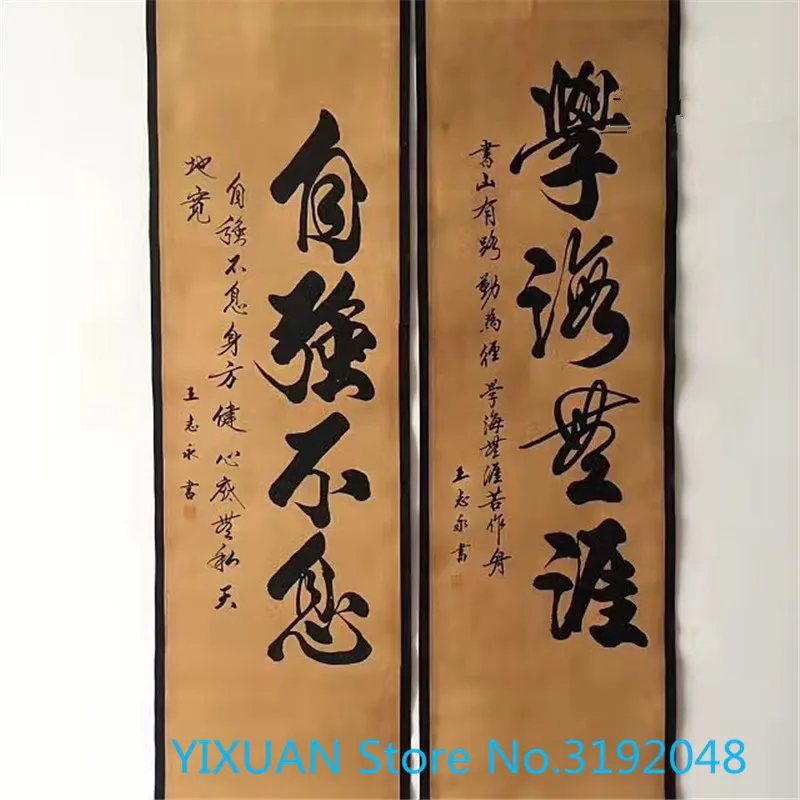 學海無涯
書山有路勤為徑學海無涯苦作舟
王志永書
自強不息
自強不息身方健心底無私天
地寬
王志永書
YIXUAN Store No.3192048